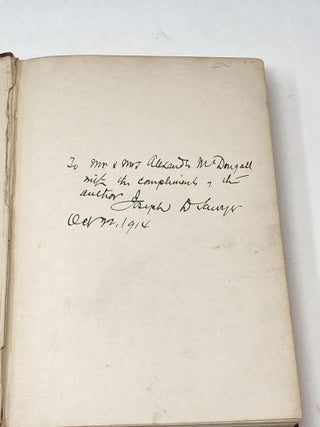 To Mr & Mrs Alexander McDougall
with the compliments of the
author Joseph D Sawyer
Oct 1914